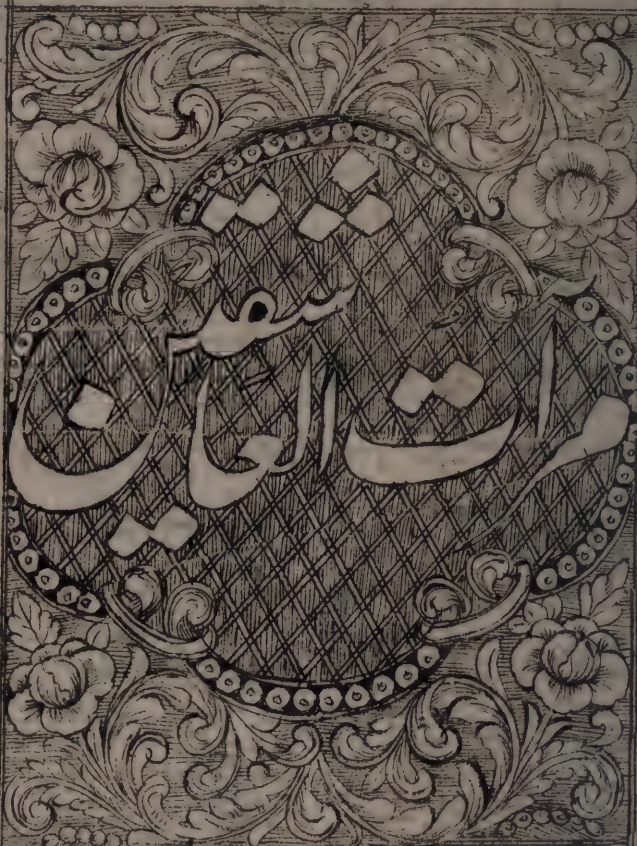 مرآت العاشقین